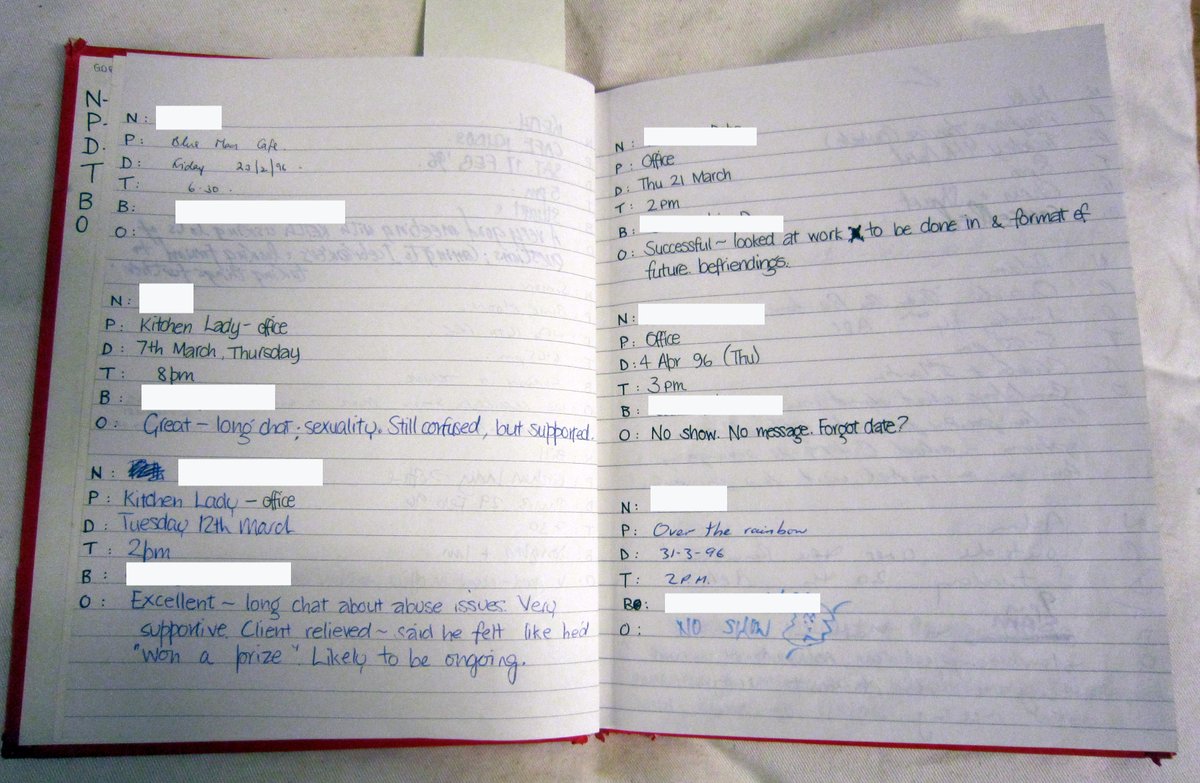 GOR
N-
P-
D-
T
B
O
N:
P: Blue Man Cafe.
D: Friday 23/2/96.
T: 6.30.
B:
O:
N:
P: Kitchen Lady - office
D: 7th March, Thursday
T: 8pm
B:
O: Great - long chat; sexuality. Still confused, but supported.
N:
P: Kitchen Lady - office
D: Tuesday 12th March
T: 2pm
B:
O: Excellent ~ long chat about abuse issues. Very
supportive. Client relieved ~ said he felt like he'd
"won a prize". Likely to be ongoing.
N:
P: Office
D: Thu 21 March
T: 2pm
B:
O: Successful ~ looked at work to be done in & format of
future befriendings.
N:
P: Office
D: 4 Apr 96 (Thu)
T: 3pm
B:
O: No show. No message. Forgot date?
N:
P: Over the rainbow
D: 31-3-96
T: 2P.M.
B:
O: NO SHOW